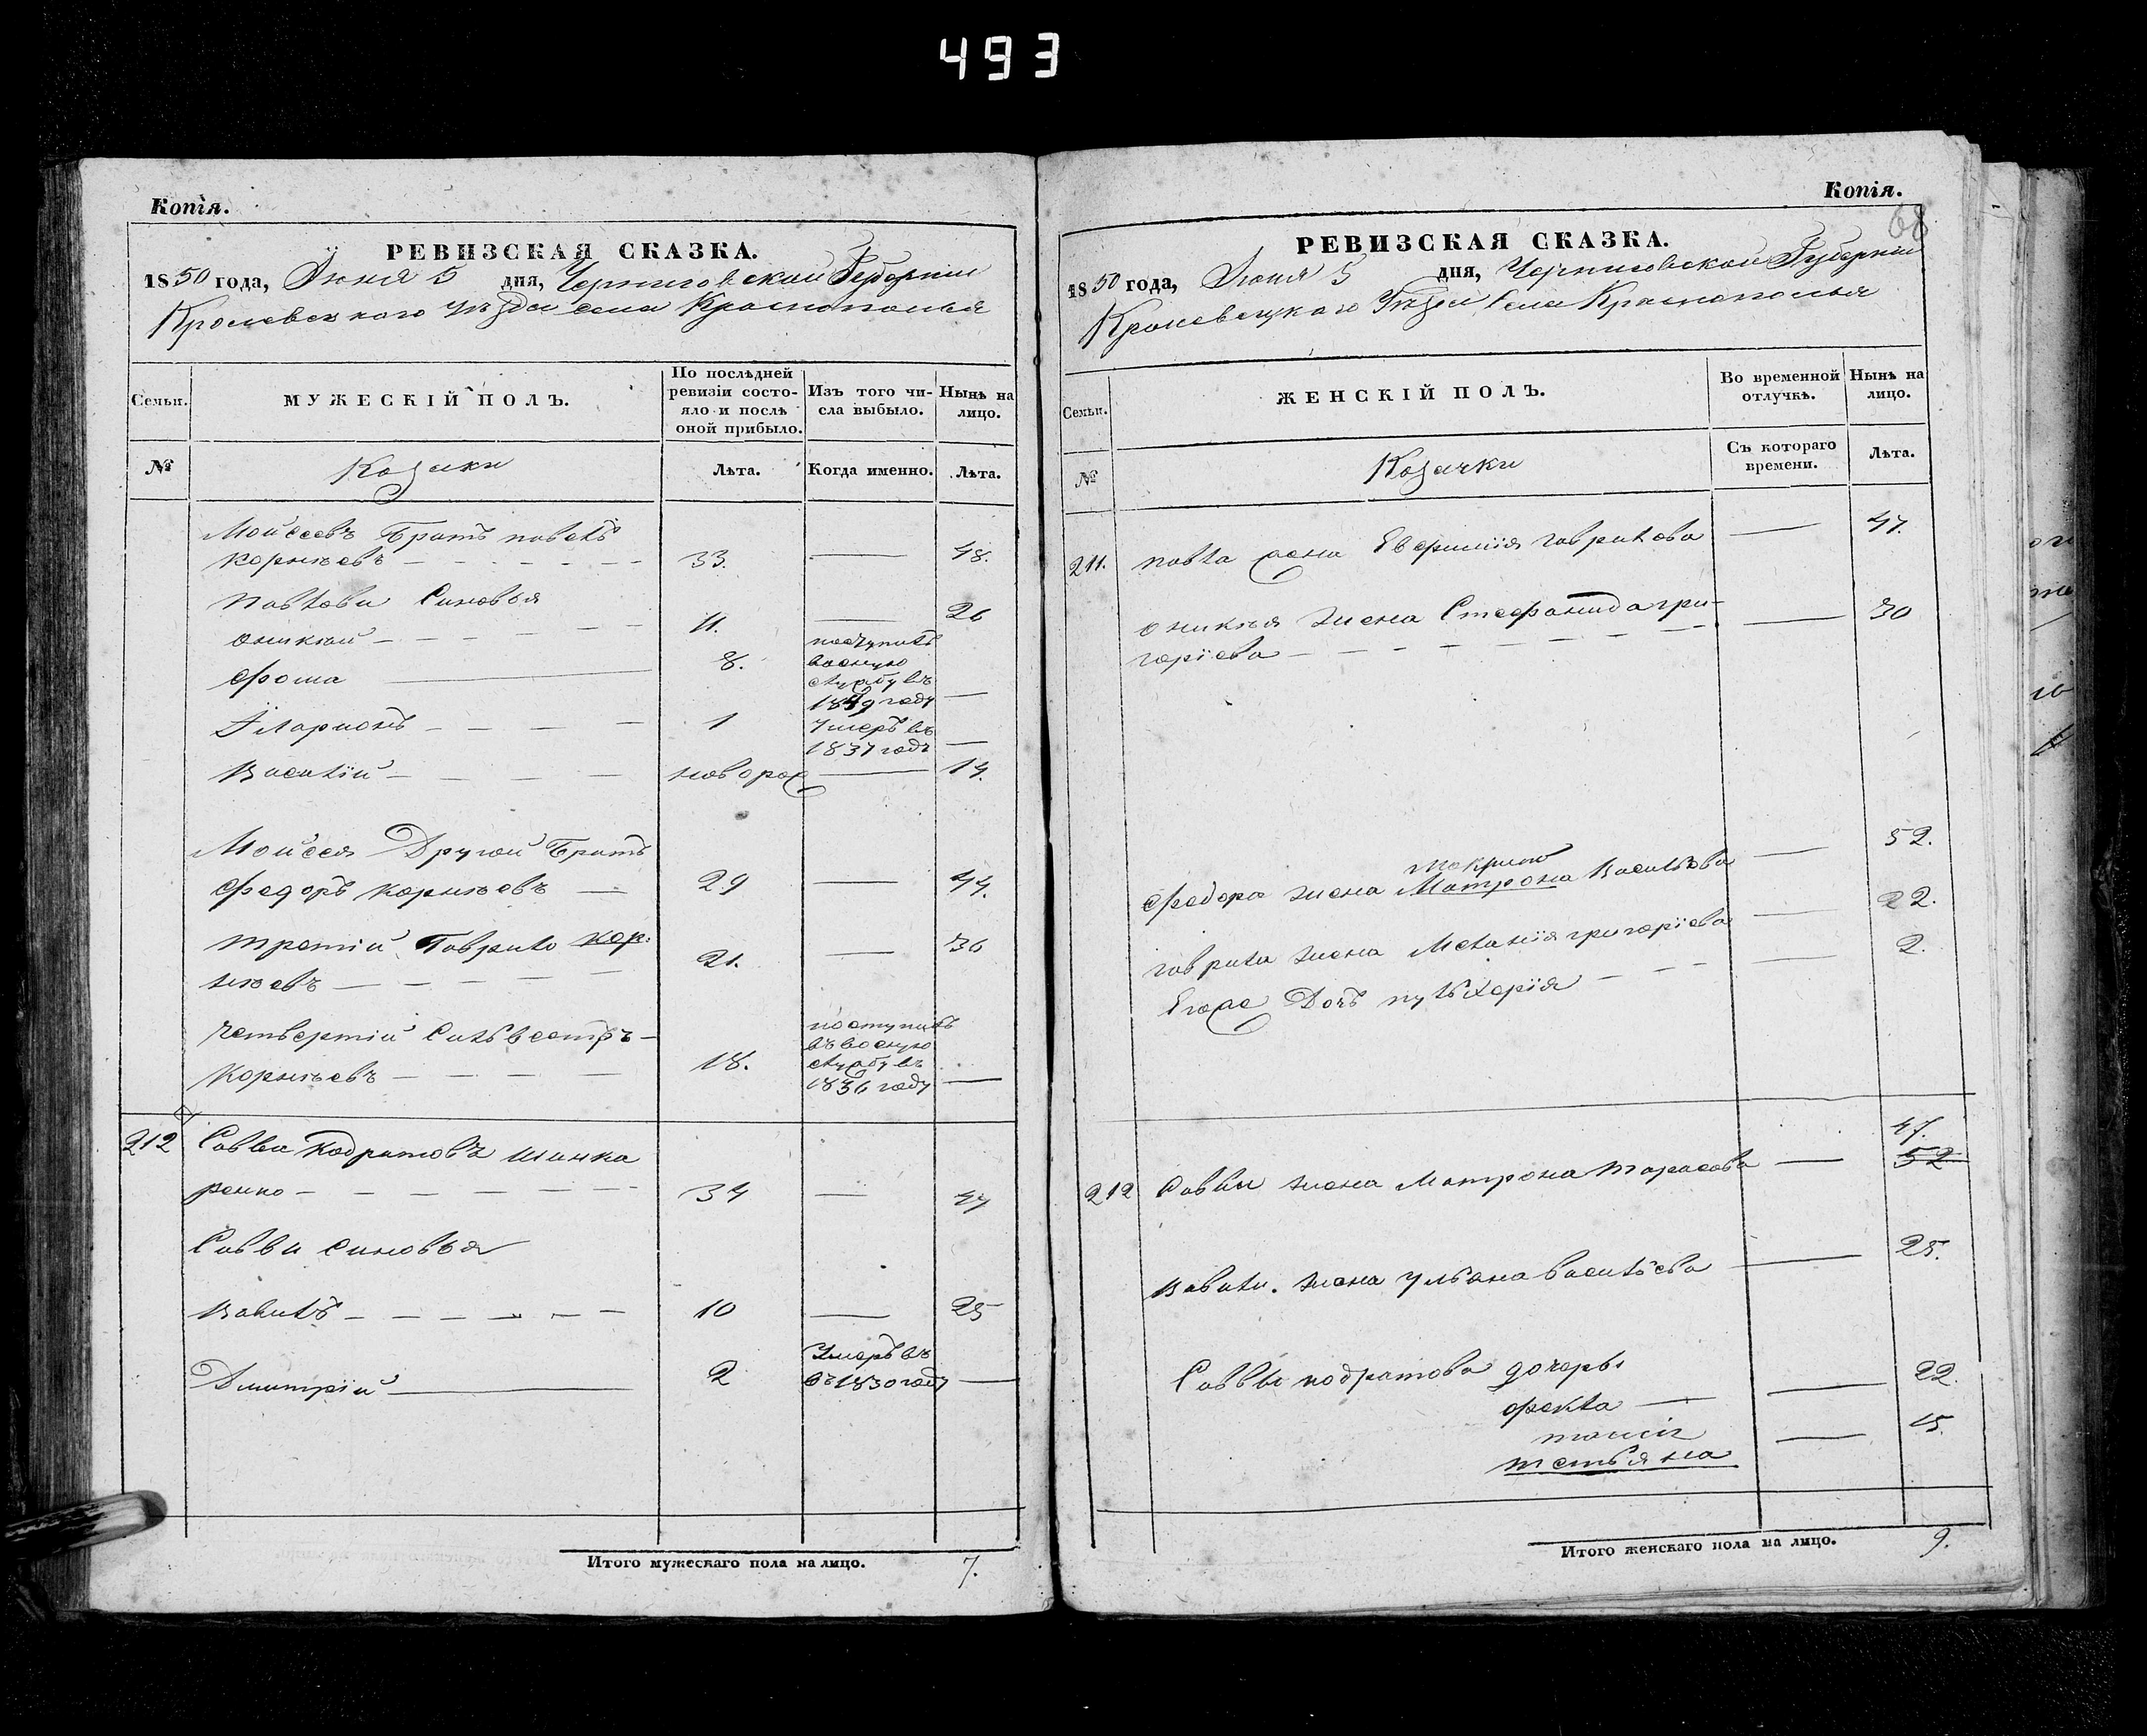 493
Копія.
РЕВИЗСКАЯ СКАЗКА.
1850 года, Июня 5 дня, Черниговской Губерніи
Кролевецкого уѣзда села Краснополья
Семьи. МУЖЕСКІЙ ПОЛЪ. По послѣдней ревизіи состояло и послѣ оной прибыло. Изъ того числа выбыло. Нынѣ на лицо.
№ Козаки Лѣта. Когда именно. Лѣта.
Мойсеевъ Братъ павелъ
корнѣевъ 33. 48.
павлови Синовья
оникій 11. 26
Фома 8. поступилъ
военую
службу въ
1849 году
Иларионъ 1 Умеръ въ
1837 годъ
Василій новорож 14.
Мойсея Другой Братъ
Федоръ корнѣевъ 29 44.
третій Гаврило кор-
нѣевъ 21. 36
четвертій Силвестръ
корнѣевъ 18. поступилъ
въ военую
службу въ
1836 году
212 Савва кодратовъ шинка
ренко 34 49
Савви синовья
Вавилъ 10 25
Дмитрій 2 Умеръ въ
въ 1830 году
Итого мужескаго пола на лицо. 7.
Копія.
68
РЕВИЗСКАЯ СКАЗКА.
1850 года, Июня 5 дня, Черниговской Губерніи
Кролевецкаго Уѣзда Села Краснополья
Семьи. ЖЕНСКІЙ ПОЛЪ. Во временной отлучкѣ. Нынѣ на лицо.
№ Козачки Съ котораго времени. Лѣта.
211. павла жена Евфимія гаврилова 47.
оникія жена Стефанида гри-
горіева 30
макрина
Федора жена Матрона Василѣва 52.
гаврила жена Меланія григоріева 22.
Егоже Дочь пулхерія 2.
47.
212 Саввы жена Матрона тарасова 52
вавили. жена ульяна василѣева 25.
Саввы кодратова дочеры
фекла 22.
таисія
татьяна 15.
Итого женскаго пола на лицо. 9.